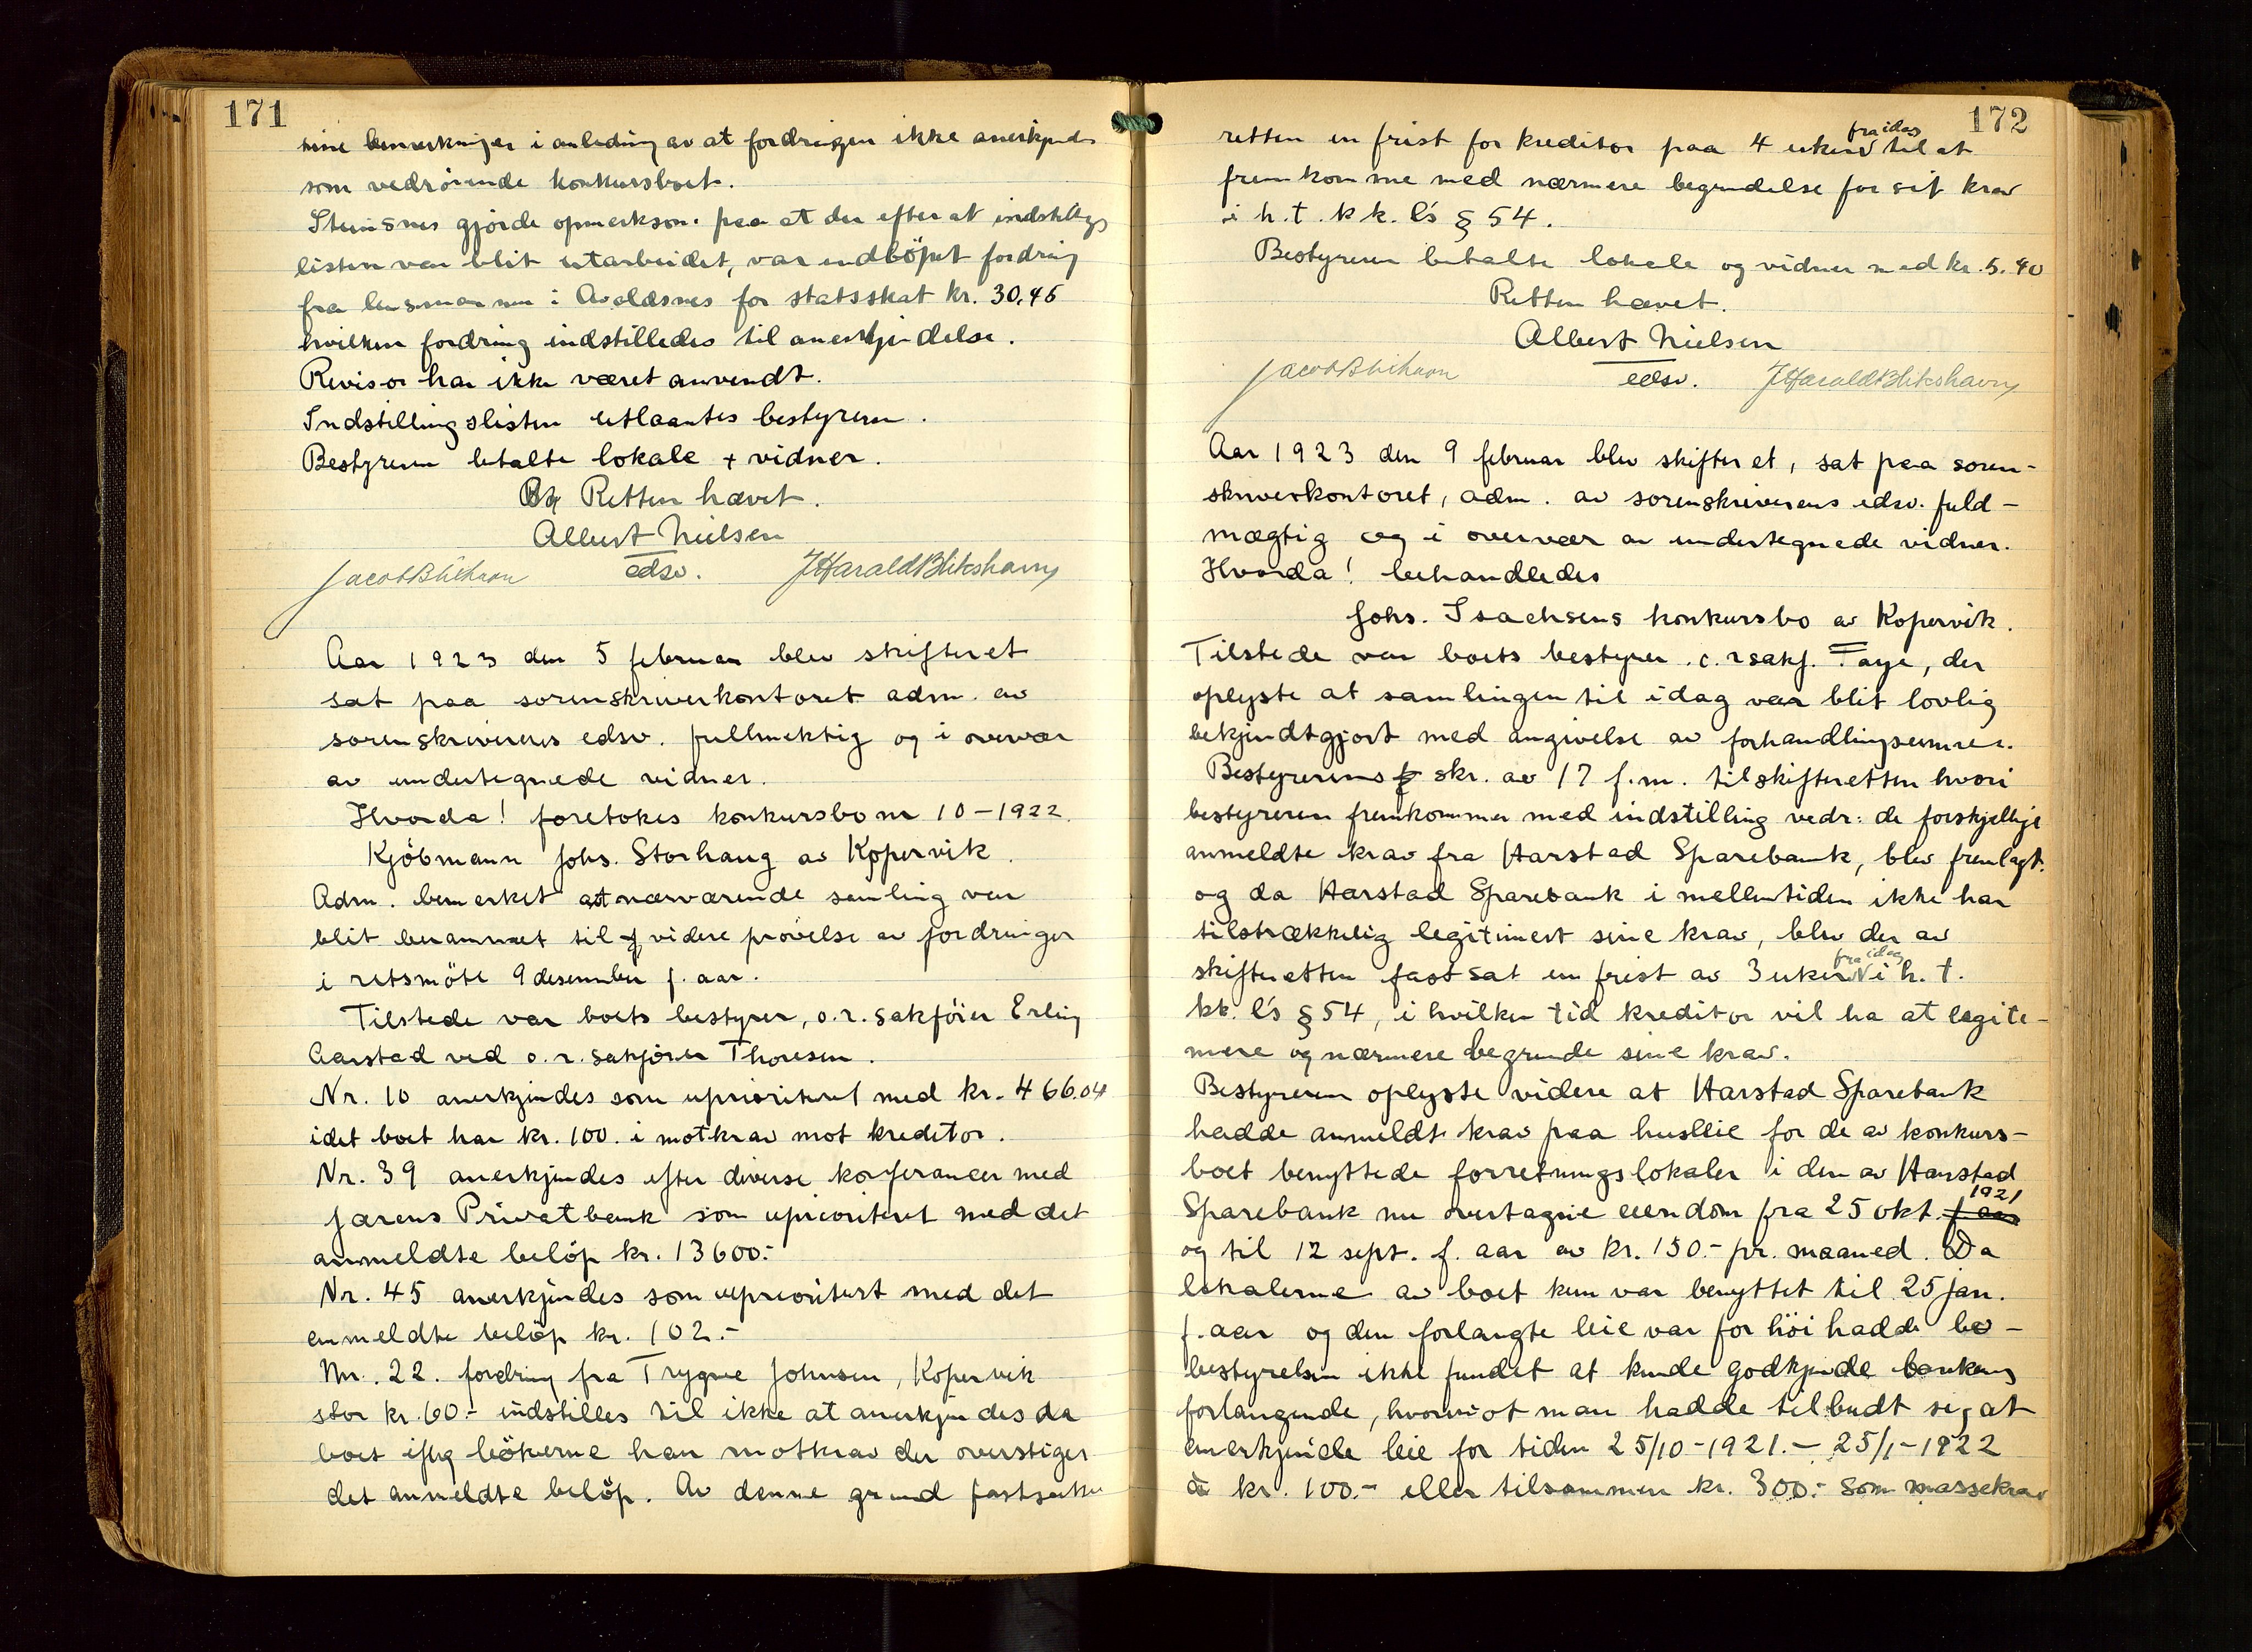 171
sine bemerkninger i anledning av at fordringen ikke anerkjendes
som vedrörende konkursboet.
Steinsnes gjorde opmerksom paa at der efter at indstillings
listen var blit utarbeidet, var indlöpet fordring
fra lensmannen i Avaldsnes for statsskat kr. 30,45
hvilken fordring indstilledes til anerkjendelse.
Revisor har ikke været anvendt.
Indstillingslisten utlaantes bestyreren.
Bestyreren betalte lokale + vidner.
Retten hævet.
Albert Nielsen
edsv.
Jacob Blikhavn J Harald Blikshavn
Aar 1923 den 5 februar blev skifteret
sat paa sorenskriverkontoret adm. av
sorenskriverens edsv. fullmektig og i overvær
av undertegnede vidner.
Hvorda! foretokes konkursbo nr 10-1922.
Kjöbmann Johs. Storhaug av Kopervik.
Adm. bemerket at nærværende samling var
blit berammet til videre prövelse av fordringer
i retsmöte 9 desember f. aar.
Tilstede var boets bestyrer, o.r. sakförer Erling
Aarstad ved o.r. sakförer Thoresen.
Nr. 10 anerkjendes som uprioritert med kr. 466.04
idet boet har kr. 100. i motkrav mot kreditor.
Nr. 39 anerkjendes efter diverse konferancer med
Jærens Privatbank som uprioritert med det
anmeldte belöp kr. 13600.-
Nr. 45 anerkjendes som uprioritert med det
anmeldte belöp kr. 102.-
Nr. 22. fordring fra Trygve Johnsen, Kopervik
stor kr. 60.- indstilles til ikke at anerkjendes da
boet iflg bökerne har motkrav der overstiger
det anmeldte belöp. Av denne grund fastsatte
172
retten en frist for kreditor paa 4 uker fra idag til at
fremkomme med nærmere begrundelse for sit krav
i h.t. kk. l's § 54.
Bestyreren betalte lokale og vidner med kr. 5.40
Retten hævet.
Albert Nielsen
edsv.
Jacob Blikhavn J Harald Blikshavn
Aar 1923 den 9 februar blev skifteret, sat paa soren-
skriverkontoret, adm. av sorenskriverens edsv. fuld-
mægtig og i overvær av undertegnede vidner.
Hvorda! behandledes
Johs. Isachsens konkursbo av Kopervik.
Tilstede var boets bestyrer o.r sakf. Faye, der
oplyste at samlingen til idag var blit lovlig
bekjendtgjort med angivelse av forhandlingsemner.
Bestyrerens skr. av 17 f.m. til skifteretten hvori
bestyreren fremkommer med indstilling vedr. de forskjellige
anmeldte krav fra Harstad Sparebank, blev fremlagt.
og da Harstad Sparebank i mellemtiden ikke har
tilstrækkelig legitimert sine krav, blev der av
skifteretten fastsat en frist av 3 uker fra idag i h.t.
kk. l's § 54, i hvilken tid kreditor vil ha at legiti-
mere og nærmere begrunde sine krav.
Bestyreren oplyste videre at Harstad Sparebank
hadde anmeldt krav paa husleie for de av konkurs-
boet benyttede forretningslokaler i den av Harstad
Sparebank nu overtagne eiendom fra 25 okt. f. aar 1921
og til 12 sept. f. aar av kr. 150.- pr. maaned. Da
lokalerne av boet kun var benyttet til 25 jan.
f. aar og den forlangte leie var for höi hadde bo-
bestyrelsen ikke fundet at kunde godkjende bankens
forlangende, hvorimot man hadde tilbudt sig at
anerkjende leie for tiden 25/10-1921.- 25/1-1922
à kr. 100.- eller tilsammen kr. 300.- som massekrav